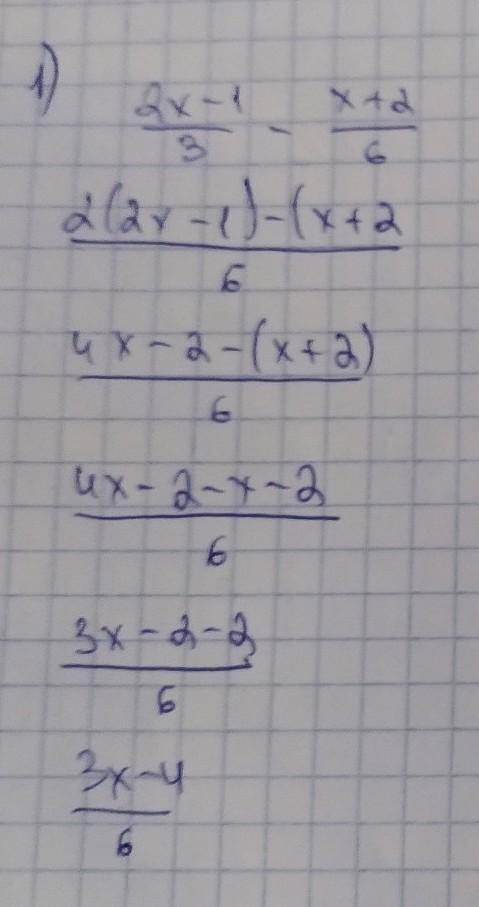 1)
(2x-1)/3 - (x+2)/6
(2(2x-1)-(x+2)/6
(4x-2-(x+2))/6
(4x-2-x-2)/6
(3x-2-2)/6
(3x-4)/6